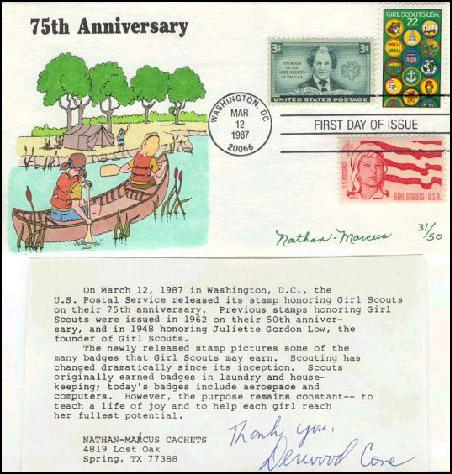 75th Anniversary
GIRL SCOUTS USA
22
3¢ 3¢
FOUNDER
OF THE
GIRL SCOUTS
UNITED STATES POSTAGE
WASHINGTON, DC
MAR
12
1987
20066
FIRST DAY OF ISSUE
U.S. POSTAGE
GIRL SCOUTS U.S.A.
Nathan-Marcus
31/50
On March 12, 1987 in Washington, D.C., the
U.S. Postal Service released its stamp honoring Girl Scouts
on their 75th anniversary. Previous stamps honoring Girl
Scouts were issued in 1962 on their 50th anniver-
sary, and in 1948 honoring Juliette Gordon Low, the
founder of Girl Scouts.
The newly released stamp pictures some of the
many badges that Girl Scouts may earn. Scouting has
changed dramatically since its inception. Scouts
originally earned badges in laundry and house-
keeping; today's badges include aerospace and
computers. However, the purpose remains constant-- to
teach a life of joy and to help each girl reach
her fullest potential.
NATHAN-MARCUS CACHETS
4819 Lost Oak
Spring, TX 77388
Thank you,
Derwood Cone